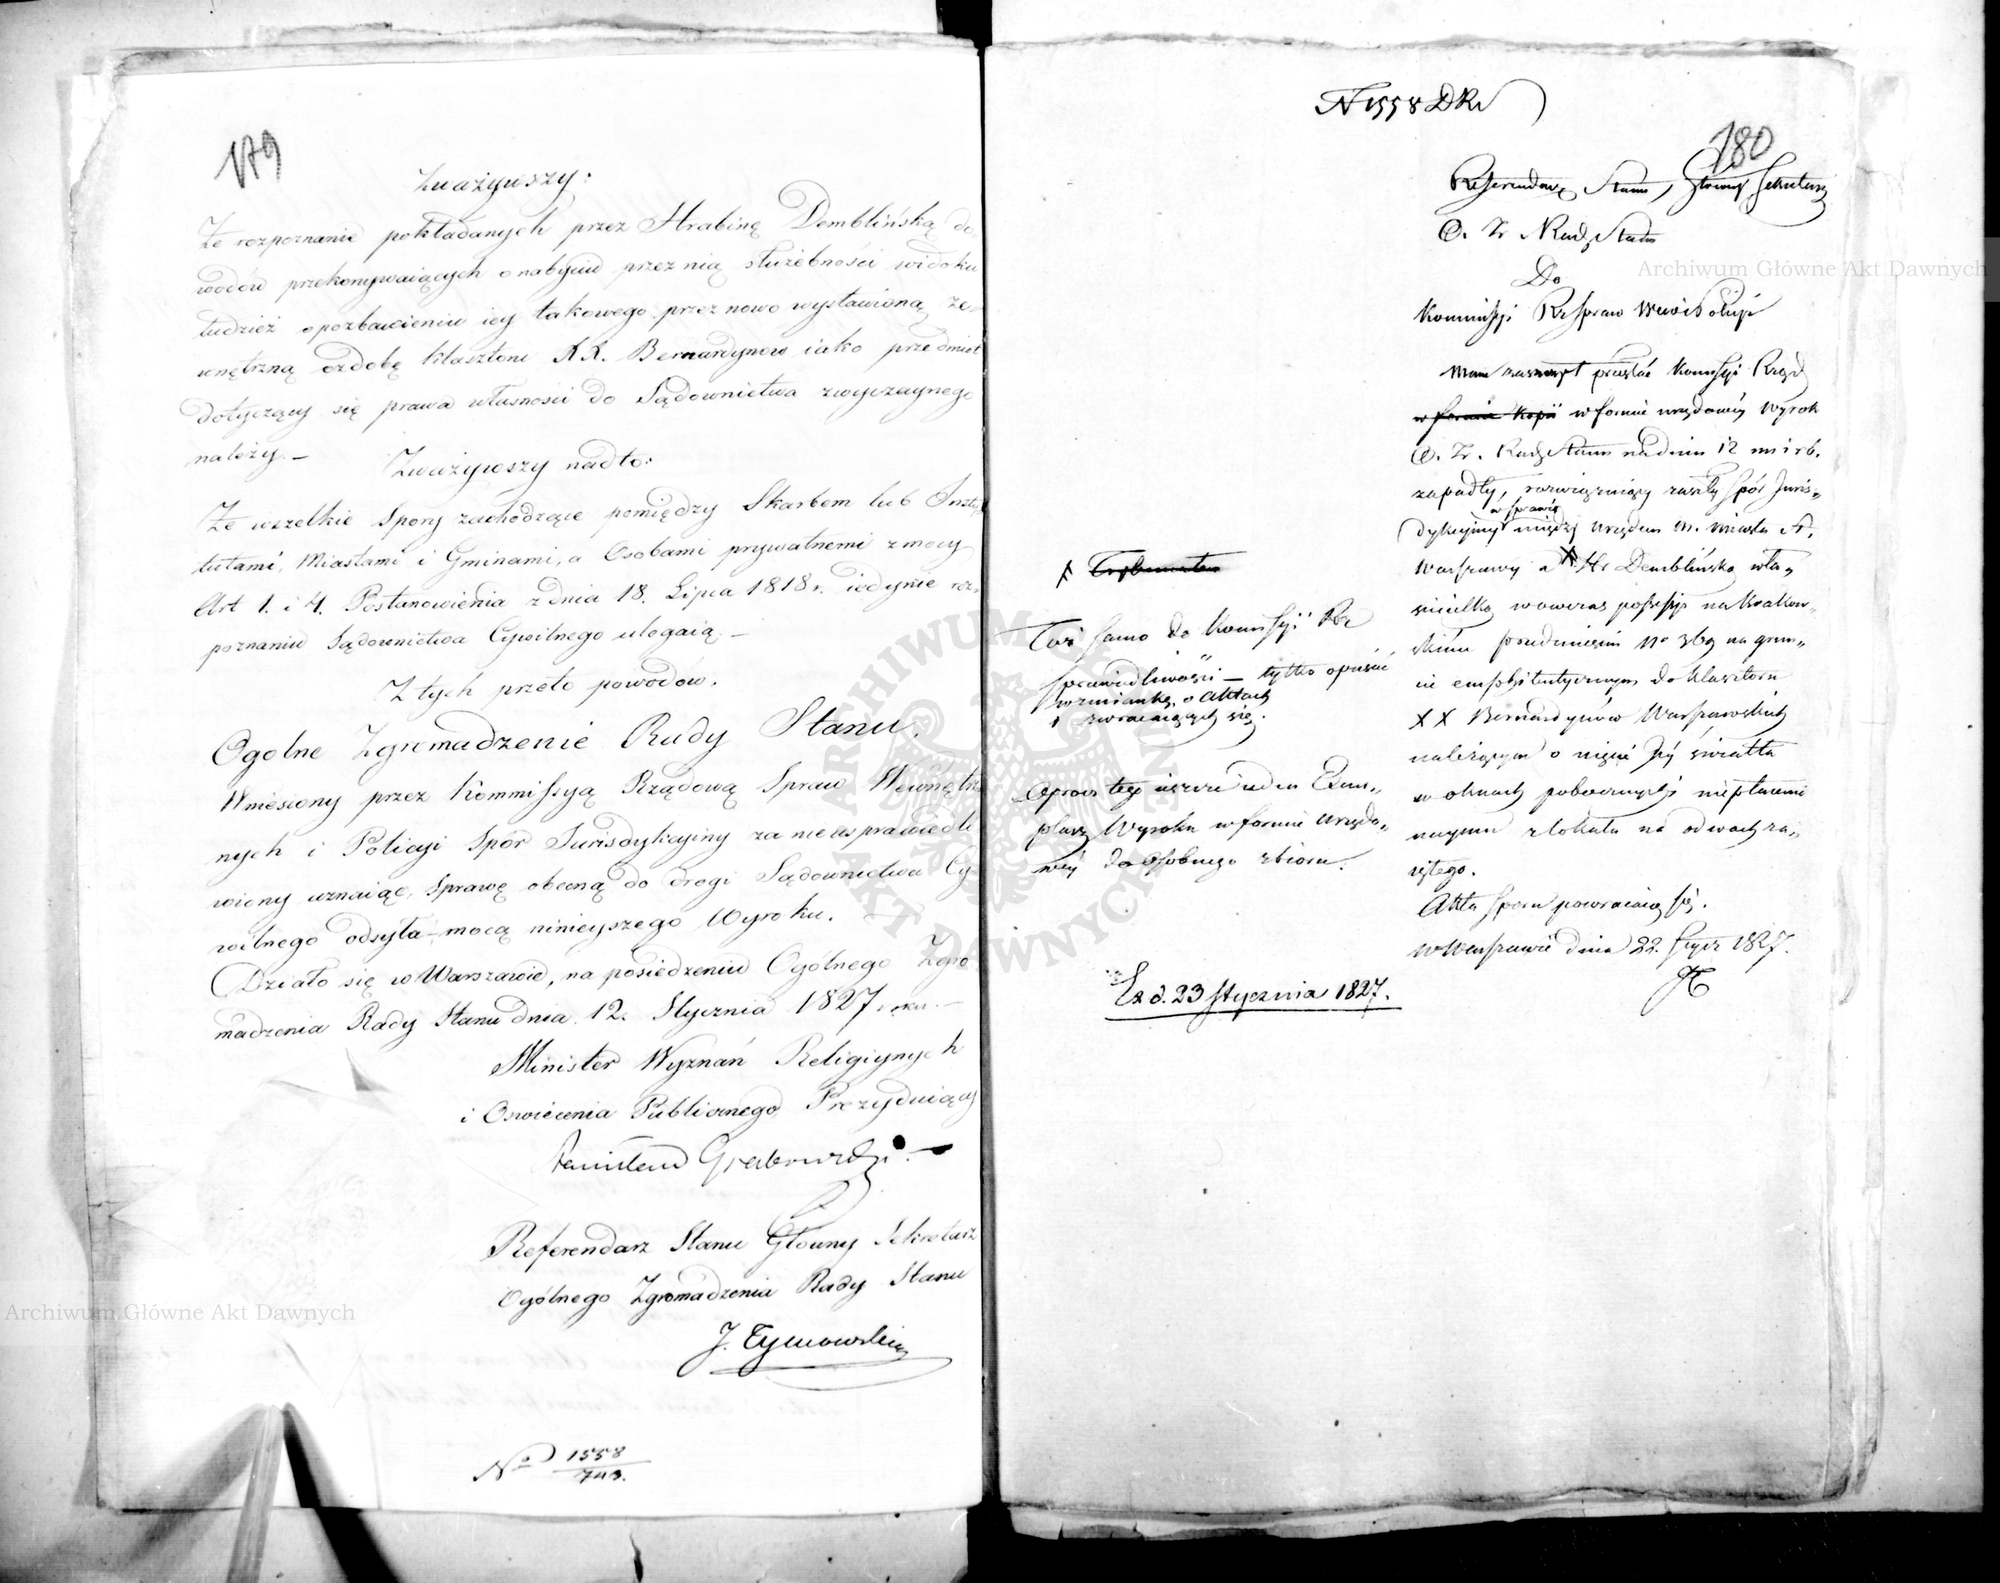 179
Zważywszy:
Że rozpoznanie pokładanych przez Hrabinę Demblińską do-
wodów przekonywaiących o nabyciu przez nią służebności widoku
tudzież o pozbawieniu iey takowego przez nowo wystawioną ze-
wnętrzną ozdobę klasztoru XX. Bernardynów iako przedmiot
dotyczący się prawa własności do Sądownictwa zwyczaynego
należy. –
Zważywszy nadto:
Że wszelkie Spory zachodzące pomiędzy Skarbem lub Insty-
tutami, Miastami i Gminami, a Osobami prywatnemi z mocy
Art 1. i 4. Postanowienia z dnia 18. Lipca 1818 r. iedynie roz-
poznaniu Sądownictwa Cywilnego ulegaią –
Z tych przeto powodów.
Ogolne Zgromadzenie Rady Stanu.
Wniesiony przez Kommissyą Rządową Spraw Wewnętrz
nych i Policyi Spór Jurisdykcyiny za nieusprawiedli
wiony uznaiąc, Sprawę obecną do drogi Sądownictwa Cy-
wilnego odsyła mocą ninieyszego Wyroku.
Działo się w Warszawie, na posiedzeniu Ogólnego Zgro
madzenia Rady Stanu dnia 12. Stycznia 1827 roku. –
Minister Wyznań Religiynych
i Oswiecenia Publicznego Prezyduiący
Stanisław Grabowski. –
Referendarz Stanu Główny Sekretarz
Ogólnego Zgromadzenia Rady Stanu
J. Tymowski
No 1558
743.
N 1558 DRS
180
Referendarz Stanu, Główny Sekretarz
O. Z. Rady Stanu
Do
Kommissyi Rz Spraw Wewn i Policyi
Mam zaszczyt przesłać Kommissyi Rząd
w formie kopii w formie urzędowey Wyrok
O. Z. Rady Stanu na dniu 12 m i r b.
zapadły, rozwiązuiący zaszły spór Juris-
dykcyiny w sprawie między Urzędem M. miasta St.
Warszawy a Hr Demblińską wła-
scicielką wowczas possessyi na Krakow-
skim przedmieściu No 369 na grun-
cie emphiteutycznym do klasztoru
XX Bernardynów Warszawskich
należącym o ujęcie Jey światła
w oknach pobocznych i niepłacenie
czynszu z lokalu na odwach za-
jętego.
Akta sporu powracaią się.
w Warszawie dnia 22. Stycz 1827.
Toż samo do Kommissyi Rz
Sprawiedliwości – tylko opuścić
wzmiankę o Aktach
zwracaiących się.
Oprocz tego ieszcze ieden Exem-
plarz Wyroku w formie urzędo-
wey do osobnego zbioru.
Ex d. 23 Stycznia 1827.
Archiwum Główne Akt Dawnych
Archiwum Główne Akt Dawnych
ARCHIWUM GŁÓWNE AKT DAWNYCH